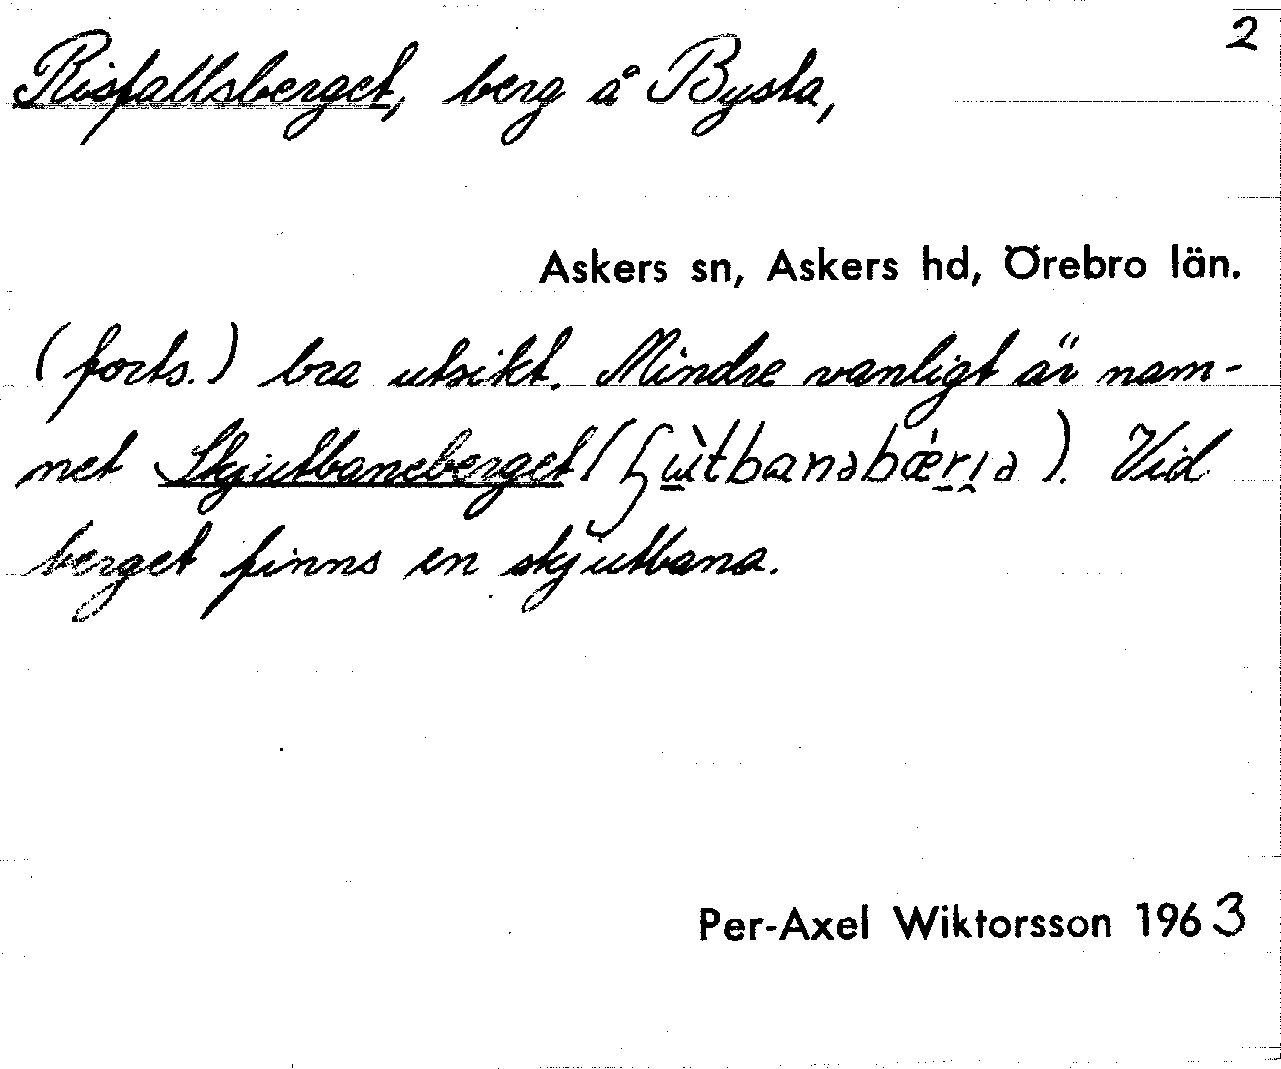 2
Risfallsberget, berg å Bysta,
Askers sn, Askers hd, Örebro län.
(forts.) bra utsikt. Mindre vanligt är nam-
net Skjutbaneberget ( ). Vid
berget finns en skjutbana.
Per-Axel Wiktorsson 1963